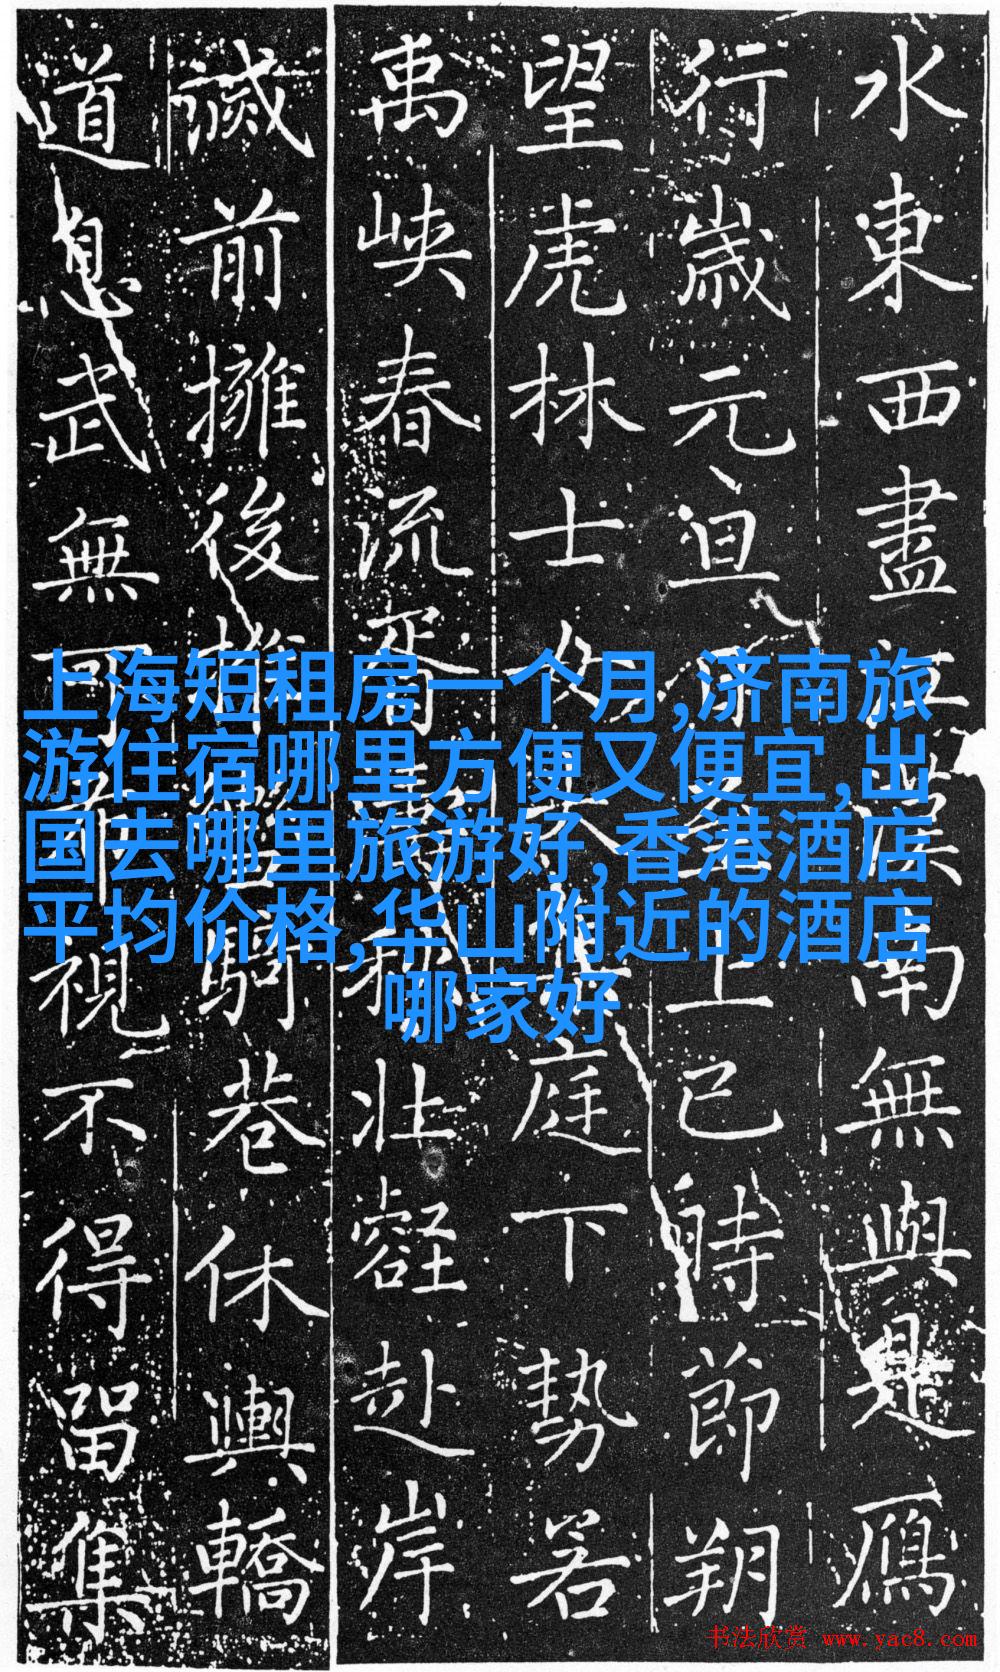 水東西盡
南無與是鴈
行歲元旦
上巳時節朔
望虎林士女
庭下勢若
禹峽春流胥
壯壑赴岸
滅前擁後推
騎巷休輿轎
道息武無可
視不得留集
上海短租房一个月,济南旅
游住宿哪里方便又便宜,出
国去哪里旅游好,香港酒店
平均价格,华山附近的酒店
哪家好
书法欣赏 www.yac8.com